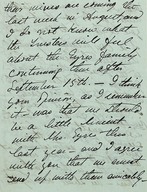 that nurses are coming the
last week in August and
I do not know what
the Trustees will feel
about the Tyros family
continuing there after
September 15th - I think
your opinion, as I remember
it - was that we should
be a little lenient
with the Tyros this
last year - and I agree
with you that we must
end up with them amicably.